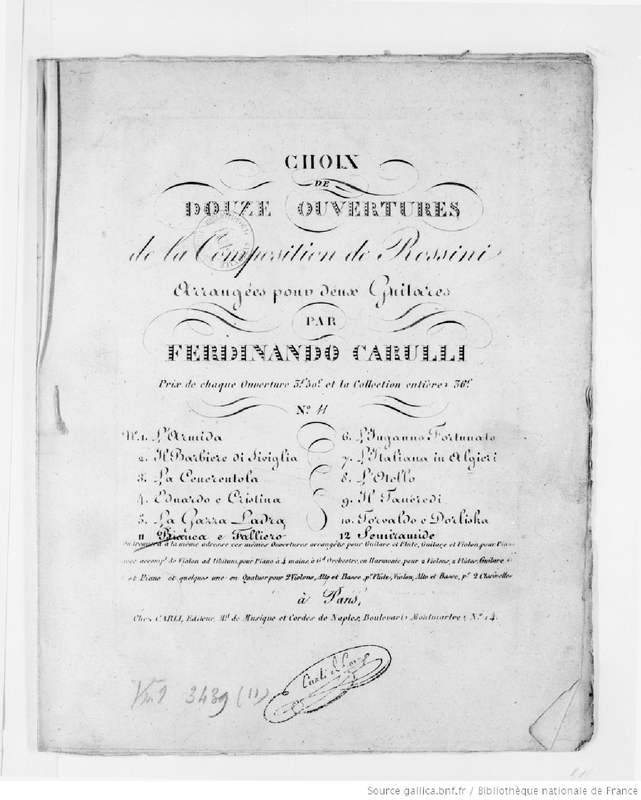 CHOIX
DE
DOUZE OUVERTURES
de la Composition de Rossini
Arrangées pour deux Guitares
PAR
FERDINANDO CARULLI
Prix de chaque Ouverture 3.f 50.c et la Collection entière 36.f
No. 11
No. 1. L'Armida
2. Il Barbiere di Siviglia
3. La Cenerentola
4. Eduardo e Cristina
5. La Gazza Ladra
11 Bianca e Falliero
6. L'Inganno Fortunato
7. L'Italiana in Algieri
8. L'Otello
9. Il Tancredi
10. Torvaldo e Dorliska
12 Semiramide
On trouvera à la même adresse ces mêmes Ouvertures arrangées pour Guitare et Flûte, Guitare et Violon, pour Piano
avec accomp.t de Violon ad libitum, pour Piano à 4 mains, à G.d Orchestre, en Harmonie, pour 2 Violons, 2 Flûtes, Guitare
et Piano et quelques une en Quatuor pour 2 Violons, Alto et Basse, p.r Flûte, Violon, Alto et Basse, p.r 2 Clarinettes
à Paris,
Chez CARLI, Editeur, M.d de Musique et Cordes de Naples, Boulevart Montmartre, No. 14.
Carli
Vm9 3439 (11)
Source gallica.bnf.fr / Bibliothèque nationale de France